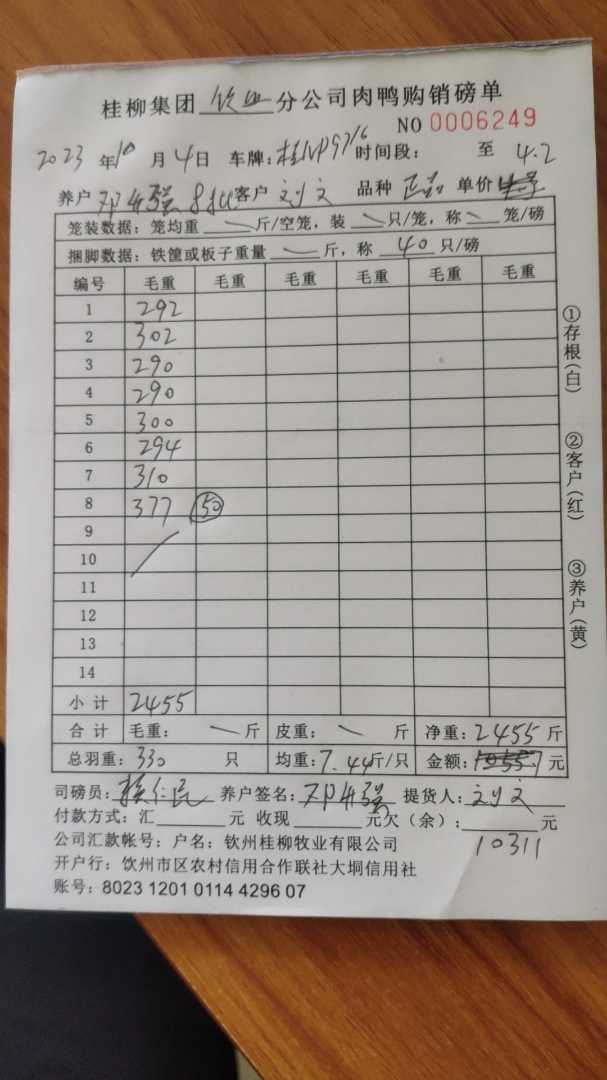 桂柳集团 钦州 分公司肉鸭购销磅单
NO 0006249
2023 年 10 月 4 日 车牌: 时间段: 至 4.2
养户 邓 强 客户 刘文 品种 正品 单价
笼装数据: 笼均重 斤/空笼, 装 只/笼, 称 笼/磅
捆脚数据: 铁筐或板子重量 斤, 称 40 只/磅
编号 毛重 毛重 毛重 毛重 毛重 毛重
1 292
2 302
3 290
4 290
5 300
6 294
7 310
8 377 50
9
10
11
12
13
14
小计 2455
合计 毛重: 斤 皮重: 斤 净重: 2455 斤
总羽重: 330 只 均重: 7.44 斤/只 金额: 元
司磅员: 养户签名: 邓 强 提货人: 刘文
付款方式: 汇 元 收现 元欠(余): 元
10311
公司汇款帐号: 户名: 钦州桂柳牧业有限公司
开户行: 饮州市区农村信用合作联社大垌信用社
账号: 8023 1201 0114 4296 07
①存根(白)
②客户(红)
③养户(黄)